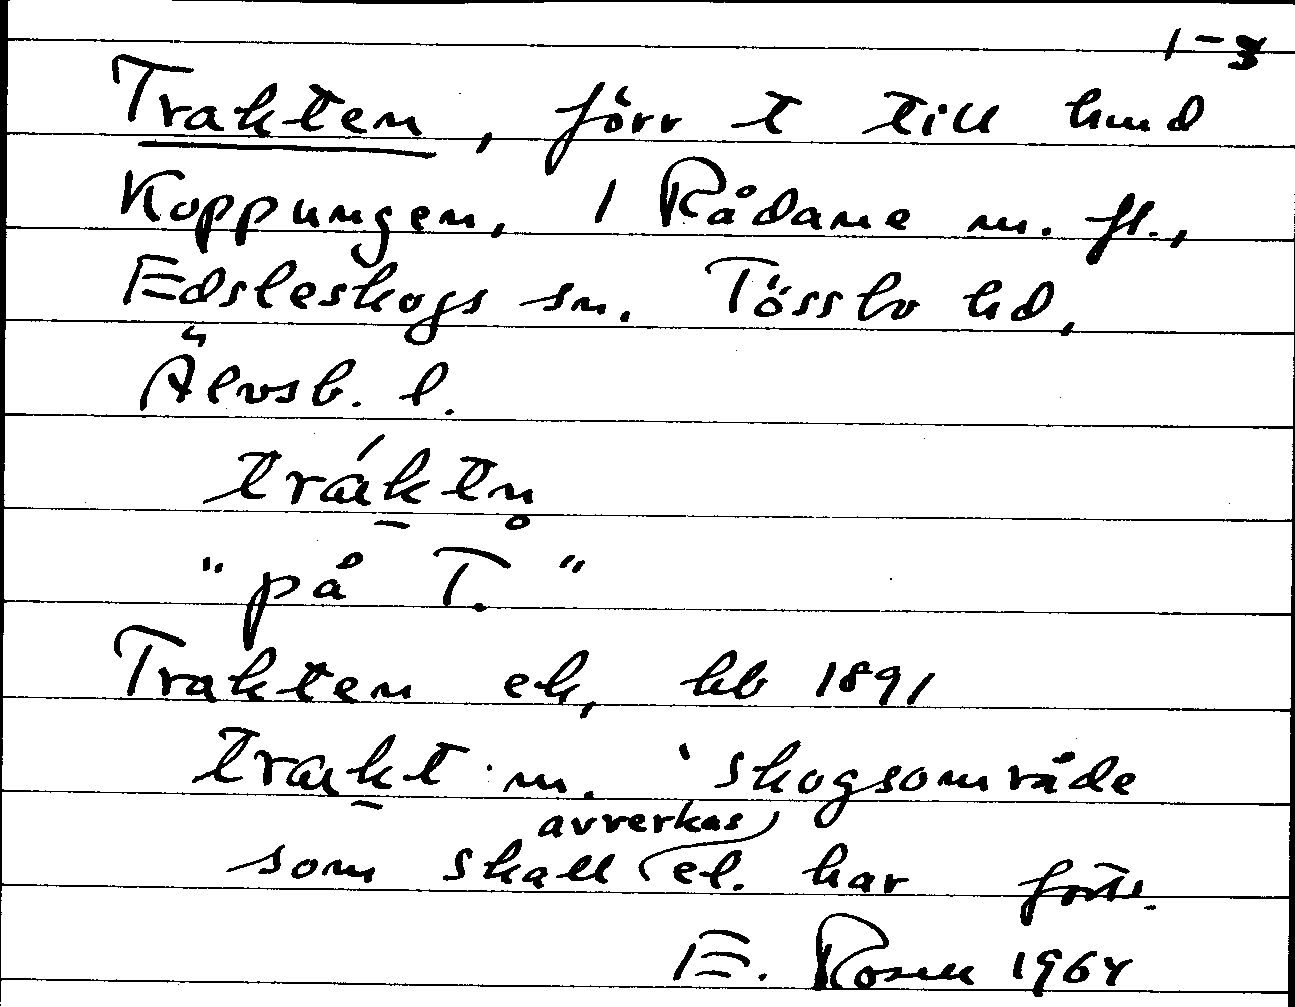 1-3
Trakten, förr t till hmd
Koppungen, 1 Rådane m. fl.,
Edsleskogs sn. Tössbo hd,
Älvsb. l.
tráktn̥
"på T."
Trakten ek, hb 1891
trakt m. 'skogsområde
som skall avverkas el. har forts.
E. Rosell 1964